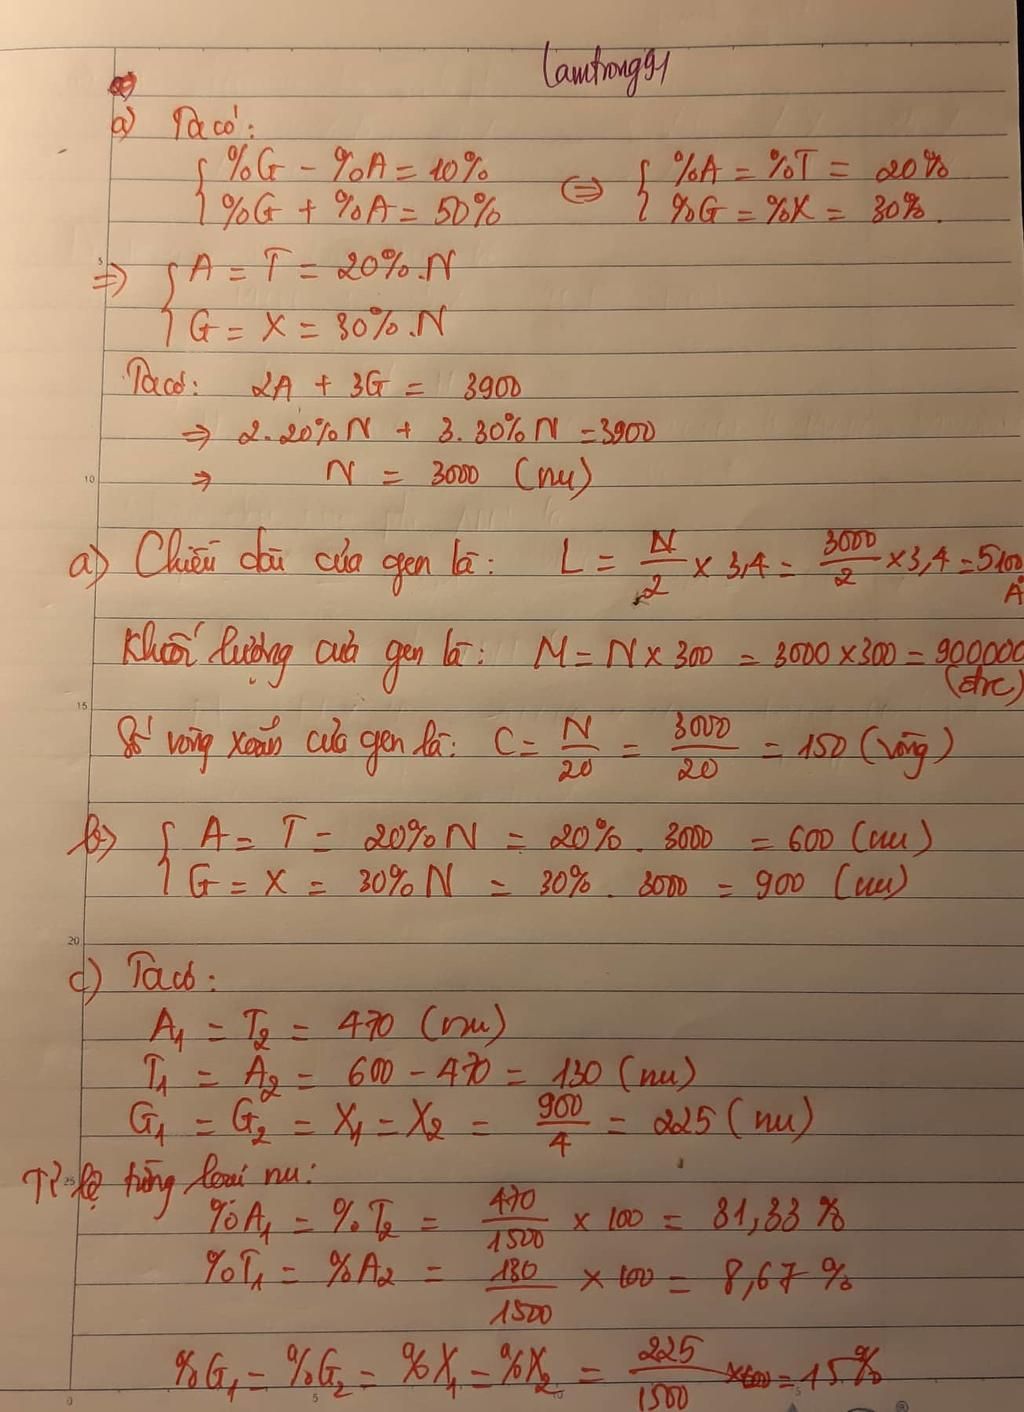 lamtrong91
a) Ta có:
{ %G - %A = 10%
%G + %A = 50% ⇔ { %A = %T = 20%
%G = %X = 30%.
⇒ { A = T = 20%.N
G = X = 30%.N
Ta có: 2A + 3G = 3900
⇒ 2.20%N + 3.30%N = 3900
⇒ N = 3000 (nu)
a) Chiều dài của gen là: L = N/2 × 3,4 = 3000/2 × 3,4 = 5100 Å
Khối lượng của gen là: M = N × 300 = 3000 × 300 = 900000 (đvc)
Số vòng xoắn của gen là: C = N/20 = 3000/20 = 150 (vòng)
b) { A = T = 20%N = 20% . 3000 = 600 (nu)
G = X = 30%N = 30% . 3000 = 900 (nu)
c) Ta có:
A₁ = T₂ = 470 (nu)
T₁ = A₂ = 600 - 470 = 130 (nu)
G₁ = G₂ = X₁ = X₂ = 900/4 = 225 (nu)
Tỉ lệ từng loại nu:
%A₁ = %T₂ = 470/1500 × 100 = 31,33 %
%T₁ = %A₂ = 130/1500 × 100 = 8,67 %
%G₁ = %G₂ = %X₁ = %X₂ = 225/1500 ×100 = 15%
5
10
15
20
25
0
5
10